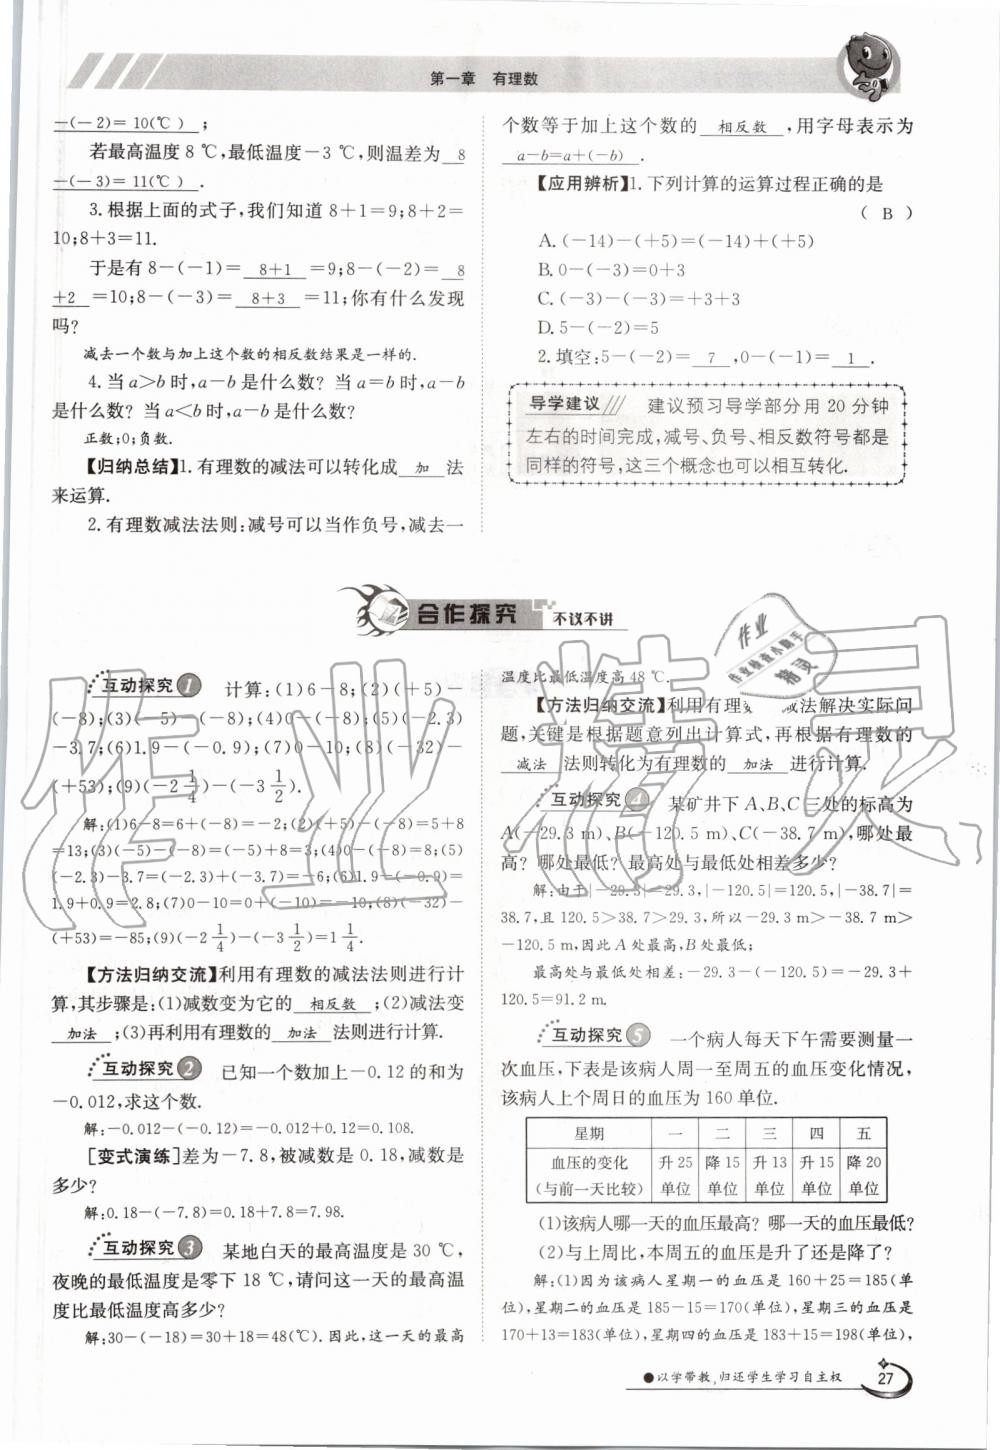 第一章 有理数
-(-2)= 10(℃) ;
若最高温度8 ℃,最低温度-3 ℃,则温差为 8
-(-3)= 11(℃) .
3.根据上面的式子,我们知道8+1=9;8+2=
10;8+3=11.
于是有8-(-1)= 8+1 =9;8-(-2)= 8
+2 =10;8-(-3)= 8+3 =11;你有什么发现
吗?
减去一个数与加上这个数的相反数结果是一样的.
4.当a>b时,a-b是什么数? 当a=b时,a-b
是什么数? 当a<b时,a-b是什么数?
正数;0;负数.
【归纳总结】1.有理数的减法可以转化成 加 法
来运算.
2.有理数减法法则:减号可以当作负号,减去一
个数等于加上这个数的 相反数 ,用字母表示为
a-b=a+(-b) .
【应用辨析】1.下列计算的运算过程正确的是
( B )
A.(-14)-(+5)=(-14)+(+5)
B.0-(-3)=0+3
C.(-3)-(-3)=+3+3
D.5-(-2)=5
2.填空:5-(-2)= 7 ,0-(-1)= 1 .
导学建议 建议预习导学部分用20分钟
左右的时间完成,减号、负号、相反数符号都是
同样的符号,这三个概念也可以相互转化.
合作探究 不议不讲
互动探究1 计算:(1)6-8;(2)(+5)-
(-8);(3)(-5)-(-8);(4)0-(-8);(5)(-2.3)
-3.7;(6)1.9-(-0.9);(7)0-10;(8)(-32)-
(+53);(9)(-2 1/4)-(-3 1/2).
解:(1)6-8=6+(-8)=-2;(2)(+5)-(-8)=5+8
=13;(3)(-5)-(-8)=(-5)+8=3;(4)0-(-8)=8;(5)
(-2.3)-3.7=(-2.3)+(-3.7)=-6;(6)1.9-(-0.9)=
1.9+0.9=2.8;(7)0-10=0+(-10)=-10;(8)(-32)-
(+53)=-85;(9)(-2 1/4)-(-3 1/2)=1 1/4.
【方法归纳交流】利用有理数的减法法则进行计
算,其步骤是:(1)减数变为它的 相反数 ;(2)减法变
加法 ;(3)再利用有理数的 加法 法则进行计算.
互动探究2 已知一个数加上-0.12的和为
-0.012,求这个数.
解:-0.012-(-0.12)=-0.012+0.12=0.108.
[变式演练]差为-7.8,被减数是0.18,减数是
多少?
解:0.18-(-7.8)=0.18+7.8=7.98.
互动探究3 某地白天的最高温度是30 ℃,
夜晚的最低温度是零下18 ℃,请问这一天的最高温
度比最低温度高多少?
解:30-(-18)=30+18=48(℃).因此,这一天的最高
温度比最低温度高48 ℃.
【方法归纳交流】利用有理 减法解决实际问
题,关键是根据题意列出计算式,再根据有理数的
减法 法则转化为有理数的 加法 进行计算.
互动探究4 某矿井下A、B、C三处的标高为
A(-29.3 m)、B(-120.5 m)、C(-38.7 m),哪处最
高? 哪处最低? 最高处与最低处相差多少?
解:由于|-29.3|=29.3,|-120.5|=120.5,|-38.7|=
38.7,且120.5>38.7>29.3,所以-29.3 m>-38.7 m>
-120.5 m,因此A处最高,B处最低;
最高处与最低处相差:-29.3-(-120.5)=-29.3+
120.5=91.2 m.
互动探究5 一个病人每天下午需要测量一
次血压,下表是该病人周一至周五的血压变化情况,
该病人上个周日的血压为160单位.
星期 一 二 三 四 五
血压的变化 升25 降15 升13 升15 降20
(与前一天比较) 单位 单位 单位 单位 单位
(1)该病人哪一天的血压最高? 哪一天的血压最低?
(2)与上周比,本周五的血压是升了还是降了?
解:(1)因为该病人星期一的血压是160+25=185(单
位),星期二的血压是185-15=170(单位),星期三的血压是
170+13=183(单位),星期四的血压是183+15=198(单位),
●以学带教,归还学生学习自主权
27
作业精灵
作业
作业检查小助手
精灵